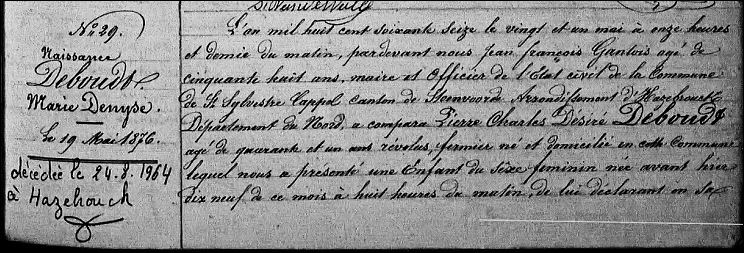 No 29.
Naissance
Deboudt
Marie Denyse.
le 19 Mai 1876.
décédée le 24.8.1964
à Hazebrouck
L'an mil huit cent soixante seize le vingt et un mai à onze heures
et demie du matin, pardevant nous Jean françois Gantois agé de
cinquante huit ans, maire et Officier de l'Etat civil de la Commune
de St Sylvestre Cappel canton de Steenvoorde Arrondissement d'Hazebrouck
Département du Nord, a comparu Pierre Charles Désiré Deboudt
agé de quarante et un ans révolus, fermier né et domicilié en cette Commune
lequel nous a présenté une Enfant du Sèxe feminin née avant hier
dix neuf de ce mois à huit heures du matin, de lui déclarant en sa